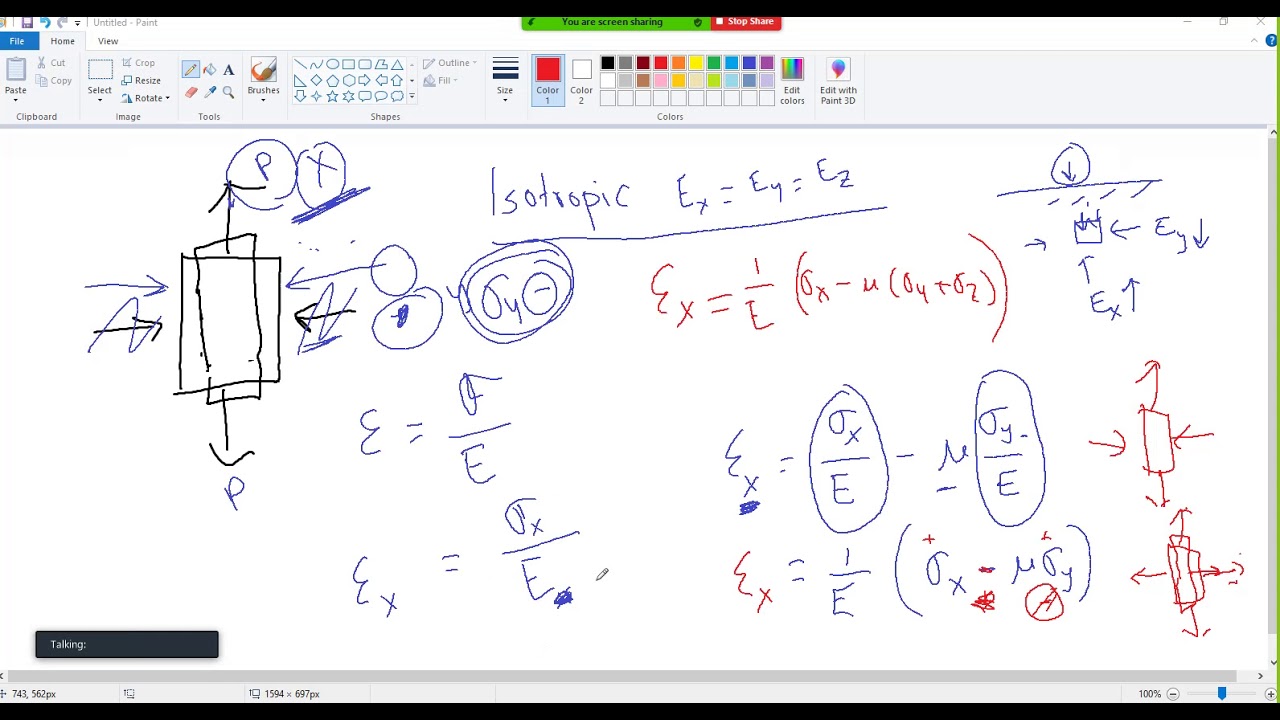 Untitled - Paint
You are screen sharing
Stop Share
File
Home
View
Cut
Copy
Paste
Clipboard
Select
Crop
Resize
Rotate
Image
A
Tools
Brushes
Outline
Fill
Shapes
Size
Color 1
Color 2
Edit colors
Colors
Edit with Paint 3D
P
X
Isotropic Ex = Ey = Ez
Ey↓
Ex↑
εx = 1/E (σx − μ(σy+σz))
σy −
ε = σ/E
εx = σx/E − μ σy/E
P
εx = σx/E
εx = 1/E (σx − μσy)
+ +
Talking:
743, 562px
1594 × 697px
100%